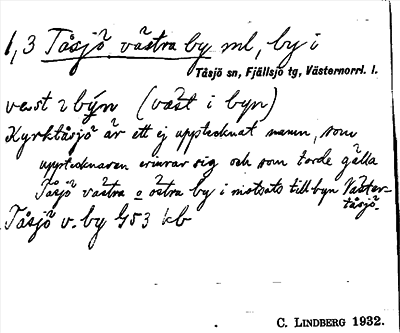 1,3 Tåsjö västra by ml, by i
Tåsjö sn, Fjällsjö tg, Västernorrl. l.
väst i byn (väst i byn)
Kyrktåsjö är ett ej upptecknat namn, som
upptecknaren erinrar sig och som torde gälla
Tåsjö västra o östra by i motsats till byn Väster-
tåsjö.
Tåsjö v. by 53 kb
C. LINDBERG 1932.